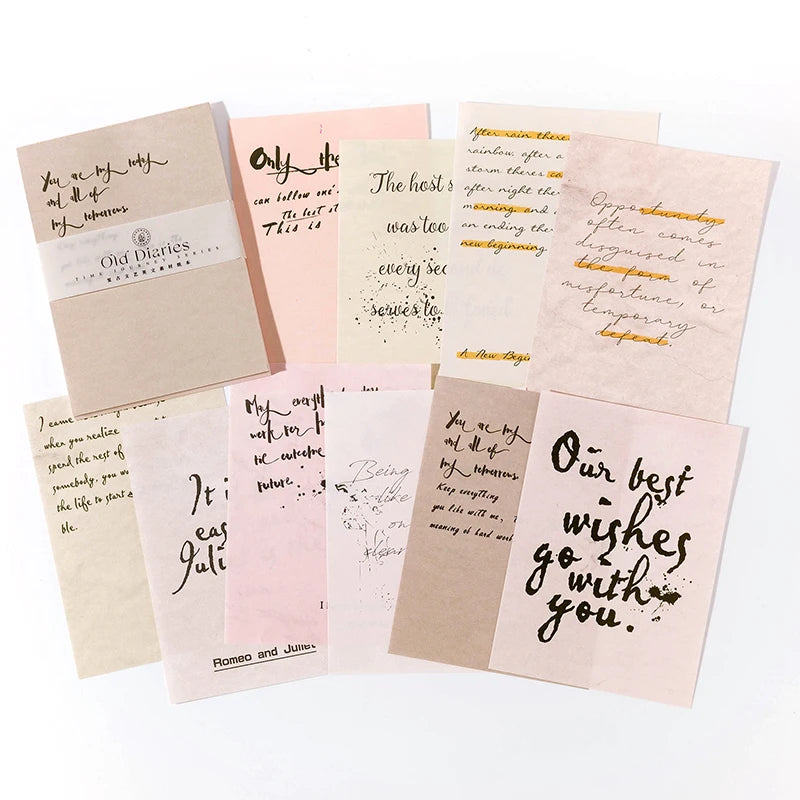 You are my today
and all of
my tomorrows.
Old Diaries
TIME JOURNEY SERIES
复古文艺英文素材纸本
Only the
can hollow one's
The best
This is
The host
was too
every sec
serves to
After rain there
rainbow, after a
storm there's
after night there
morning, and
an ending there
new beginning
A New Begin
Opportunity
often comes
disguised in
the form of
misfortune, or
temporary
defeat.
I came
when you realize
spend the rest of
somebody, you
the life to start
ble.
It i
eas
Juli
Romeo and Juliet
May everyth
work for
the outcome
future.
Being
like
on
clean
You are my
and all of
my tomorrows.
Keep everything
you like with me,
meaning of hard work
Our best
wishes
go with
you.